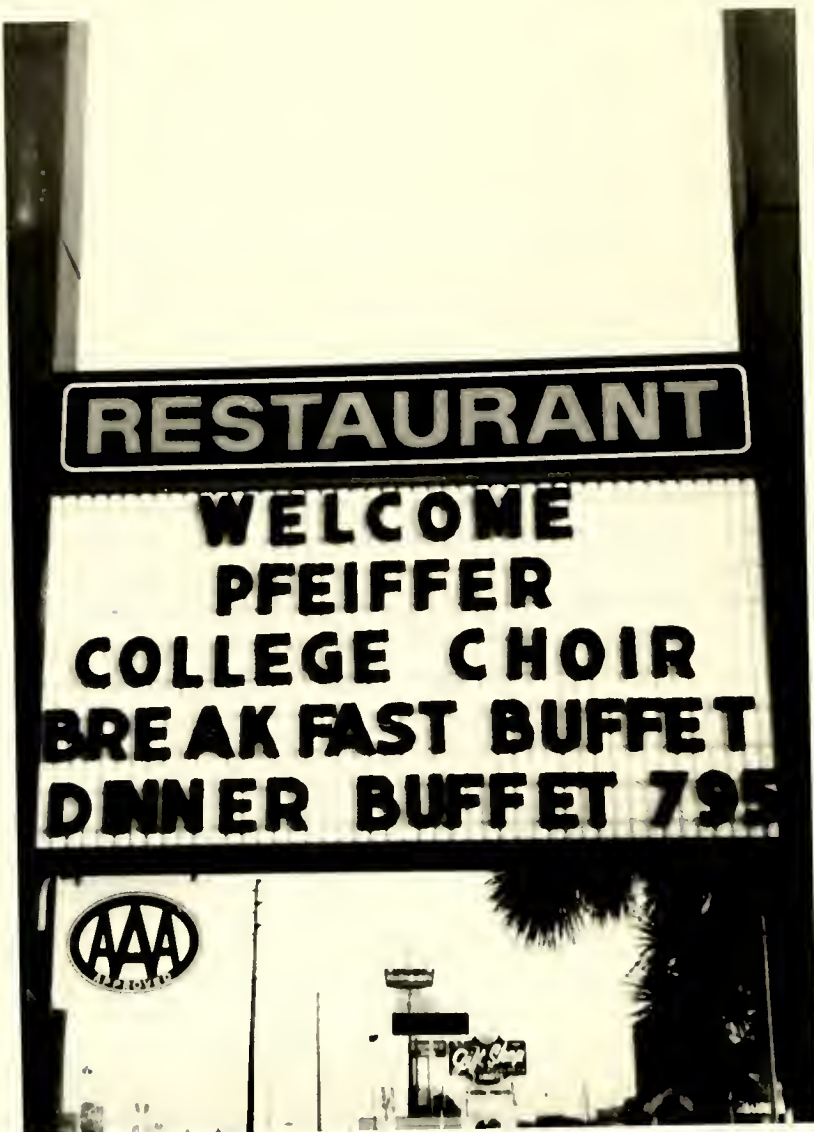 RESTAURANT
WELCOME
PFEIFFER
COLLEGE CHOIR
BREAKFAST BUFFET
DINNER BUFFET 795
AAA
APPROVED
Gift Shop